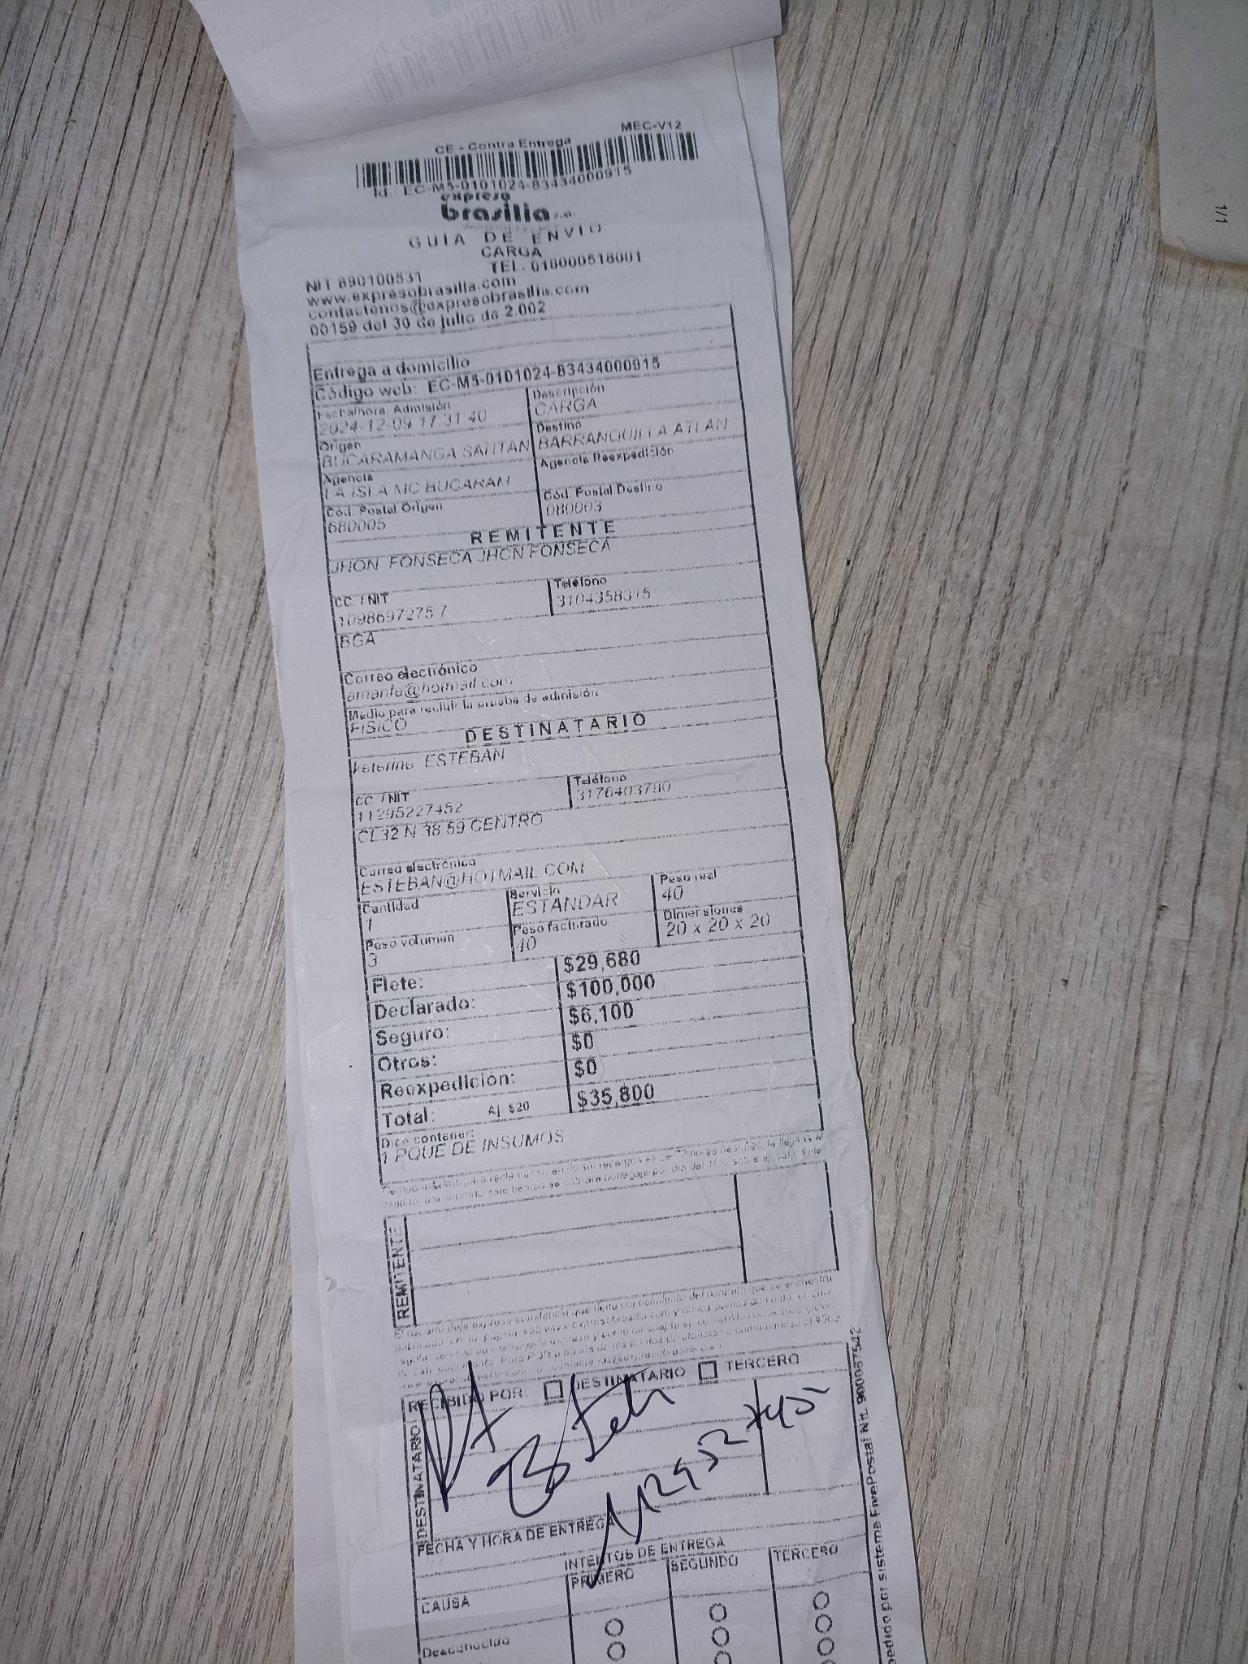 MEC-V12
CE - Contra Entrega
Id: EC-M5-0101024-83434000915
expreso
brasilia s.a.
GUIA DE ENVIO
CARGA
NIT 890100531 TEL. 018000518001
www.expresobrasilia.com
contactenos@expresobrasilia.com
00159 del 30 de julio de 2.002
Entrega a domicilio
Código web: EC-M5-0101024-83434000915
Fecha/hora Admisión Descripción
2024-12-09 17:31:40 CARGA
Origen Destino
BUCARAMANGA SANTAN BARRANQUILLA ATLAN
Agencia Agencia Reexpedición
LA ISLA MC BUCARAN
Cód. Postal Origen Cód. Postal Destino
680005 080003
REMITENTE
JHON FONSECA JHON FONSECA
CC / NIT Teléfono
1098697275 7 3104358315
BGA
Correo electrónico
amante@hotmail.com
Medio para recibir la prueba de admisión
FISICO
DESTINATARIO
ESTEBAN
CC / NIT Teléfono
11295227452 3176403780
CL32 N 38 59 CENTRO
Correo electrónico
ESTEBAN@HOTMAIL.COM
Cantidad Servicio Peso real
1 ESTANDAR 40
Peso volumen Peso facturado Dimensiones
3 40 20 x 20 x 20
Flete: $29,680
Declarado: $100,000
Seguro: $6,100
Otros: $0
Reexpedición: $0
Total: Aj $20 $35,800
Dice contener:
1 PQUE DE INSUMOS
REMITENTE
RECIBIDO POR: DESTINATARIO TERCERO
DESTINATARIO
FECHA Y HORA DE ENTREGA
INTENTOS DE ENTREGA
CAUSA PRIMERO SEGUNDO TERCERO
Desconocido
sistema FivePostal Nit. 900087542
1/1